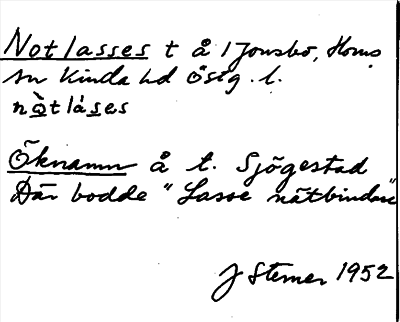 Notlasses t å 1 Jonsbo, Horns
sn Kinda hd Östg. l.
nòtláses
Öknamn å t. Sjögestad
Där bodde "Lasse nätbindare"
J Sterner 1952